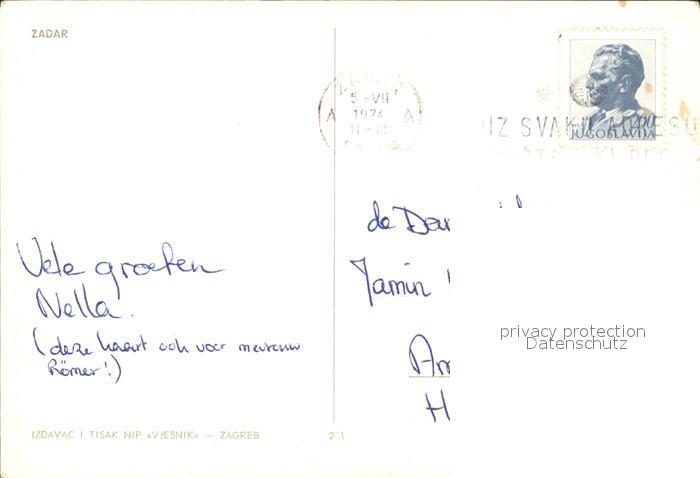 ZADAR
5 -VII
1974
A A
UZ SVAKU ADRESU
JUGOSLAVIJA
de
Vele groeten
Nella.
(deze kaart ook voor mevrouw
Römer!)
Jamin
privacy protection
Datenschutz
H
IZDAVAČ I TISAK NIP »VJESNIK« — ZAGREB